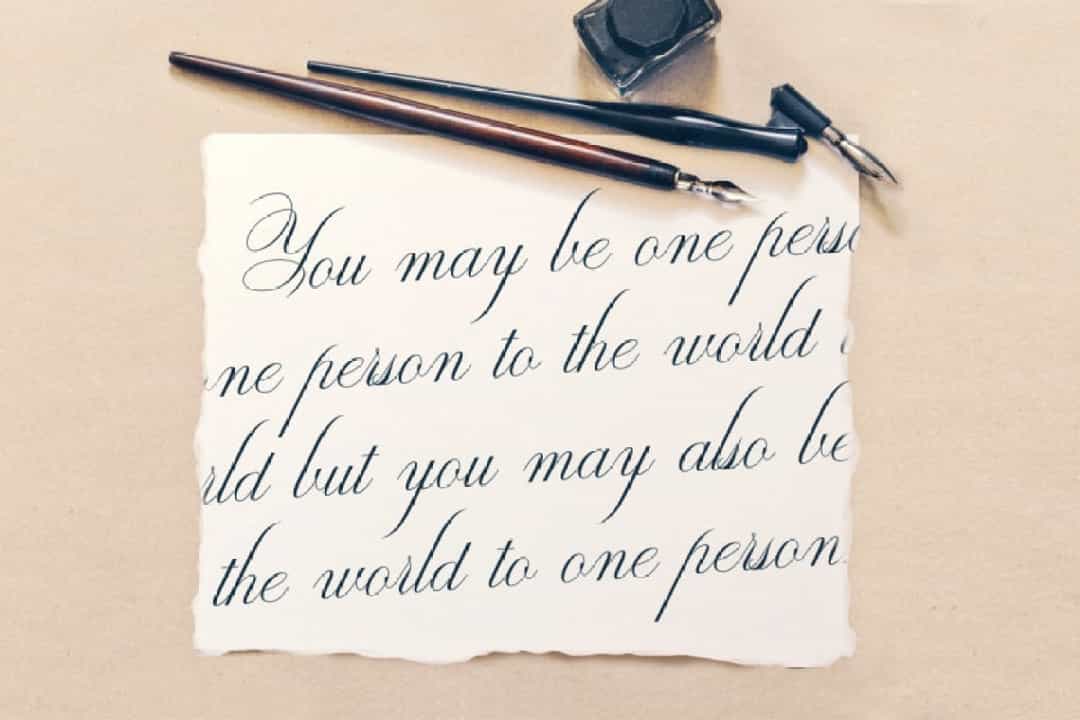 You may be one perso
ne person to the world
rld but you may also be
the world to one person.